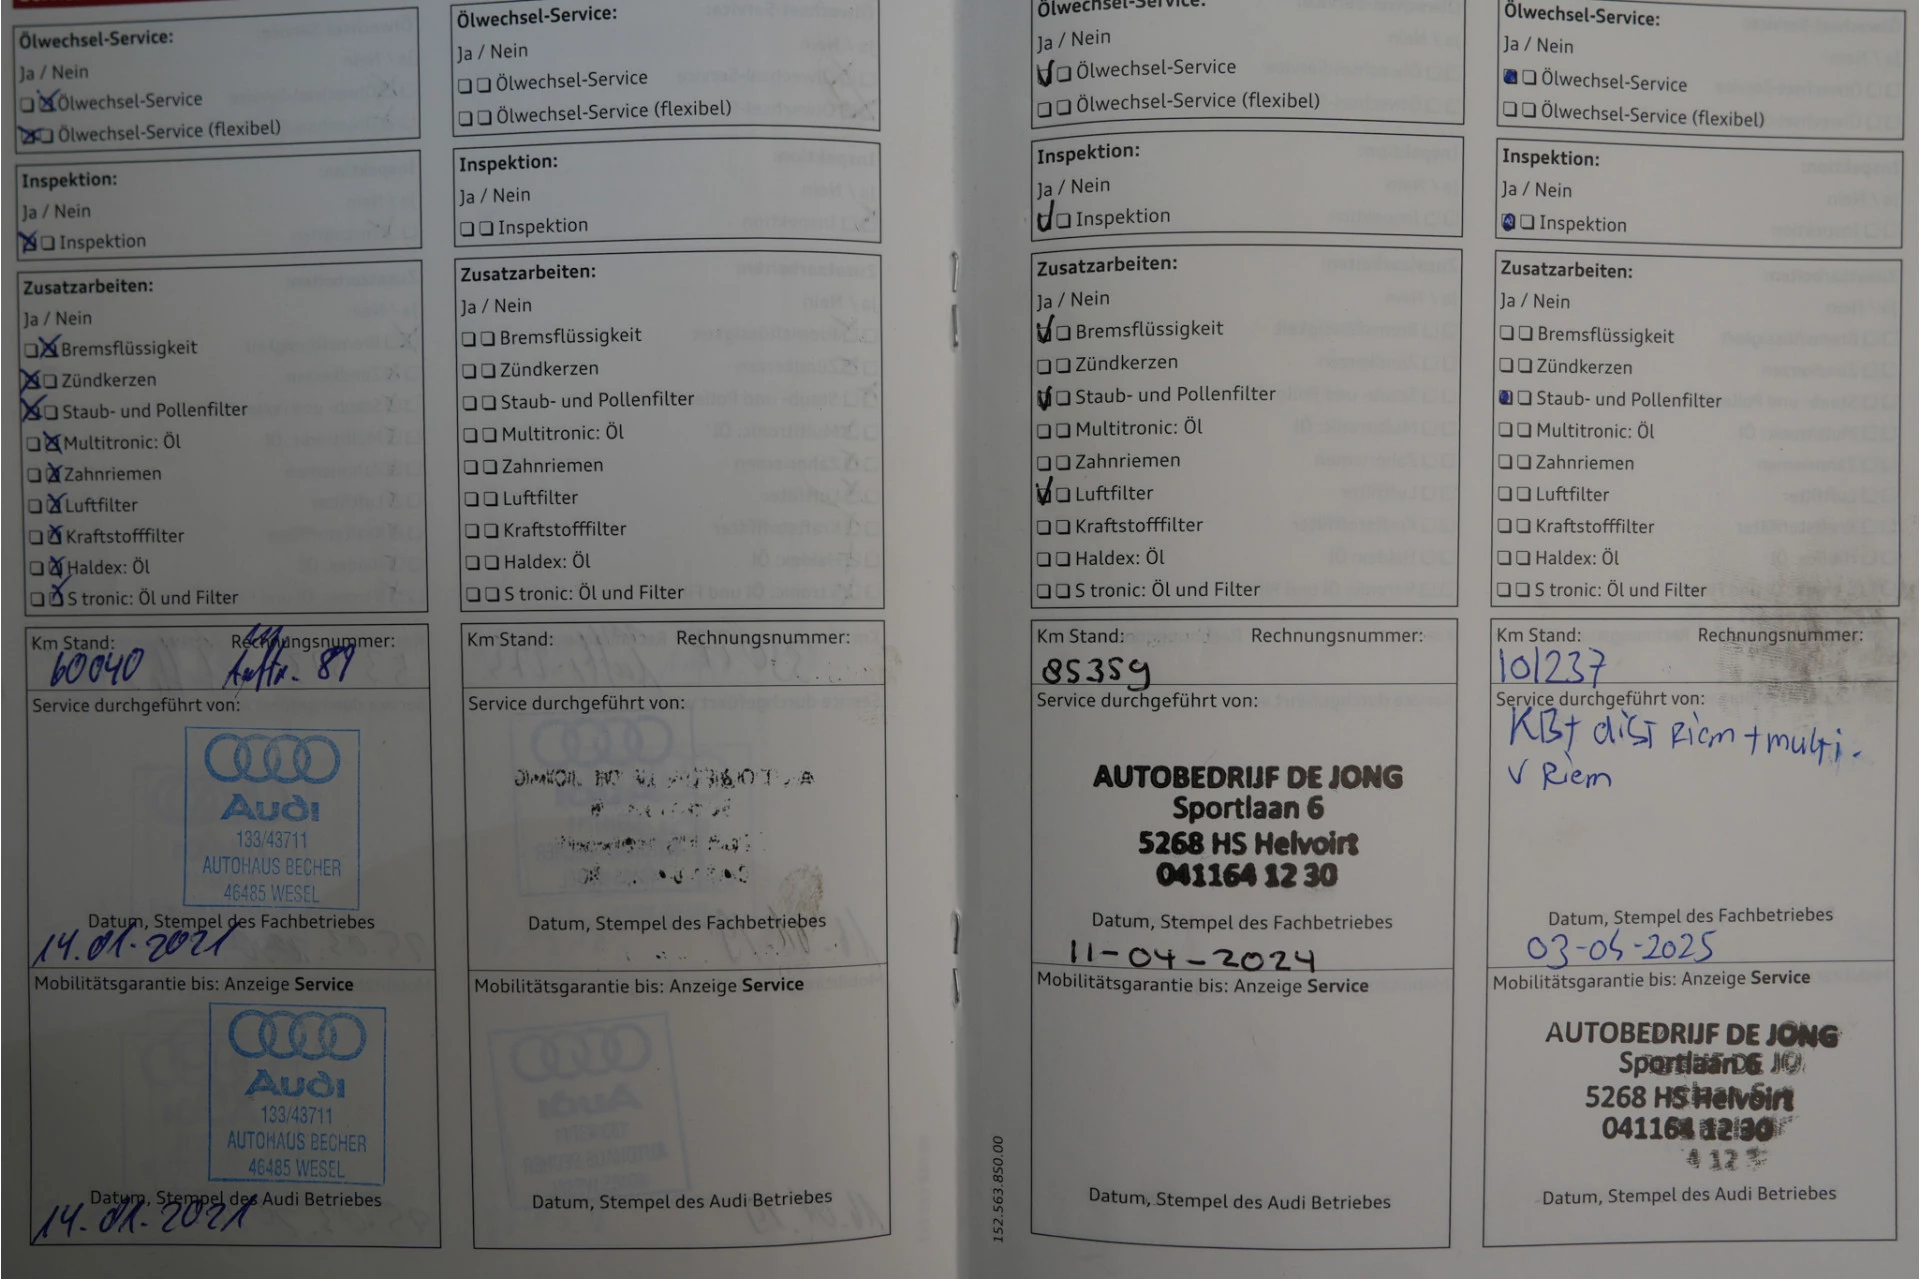 Ölwechsel-Service:
Ja / Nein
Ölwechsel-Service
Ölwechsel-Service (flexibel)
Inspektion:
Ja / Nein
Inspektion
Zusatzarbeiten:
Ja / Nein
Bremsflüssigkeit
Zündkerzen
Staub- und Pollenfilter
Multitronic: Öl
Zahnriemen
Luftfilter
Kraftstofffilter
Haldex: Öl
S tronic: Öl und Filter
Km Stand: Rechnungsnummer:
60040 Auftr. 89
Service durchgeführt von:
Audi
133/43711
AUTOHAUS BECHER
46485 WESEL
Datum, Stempel des Fachbetriebes
14.01.2021
Mobilitätsgarantie bis: Anzeige Service
Audi
133/43711
AUTOHAUS BECHER
46485 WESEL
Datum, Stempel des Audi Betriebes
14.01.2021
Ölwechsel-Service:
Ja / Nein
Ölwechsel-Service
Ölwechsel-Service (flexibel)
Inspektion:
Ja / Nein
Inspektion
Zusatzarbeiten:
Ja / Nein
Bremsflüssigkeit
Zündkerzen
Staub- und Pollenfilter
Multitronic: Öl
Zahnriemen
Luftfilter
Kraftstofffilter
Haldex: Öl
S tronic: Öl und Filter
Km Stand: Rechnungsnummer:
Service durchgeführt von:
Datum, Stempel des Fachbetriebes
Mobilitätsgarantie bis: Anzeige Service
Datum, Stempel des Audi Betriebes
Ölwechsel-Service:
Ja / Nein
Ölwechsel-Service
Ölwechsel-Service (flexibel)
Inspektion:
Ja / Nein
Inspektion
Zusatzarbeiten:
Ja / Nein
Bremsflüssigkeit
Zündkerzen
Staub- und Pollenfilter
Multitronic: Öl
Zahnriemen
Luftfilter
Kraftstofffilter
Haldex: Öl
S tronic: Öl und Filter
Km Stand: Rechnungsnummer:
85359
Service durchgeführt von:
AUTOBEDRIJF DE JONG
Sportlaan 6
5268 HS Helvoirt
041164 12 30
Datum, Stempel des Fachbetriebes
11-04-2024
Mobilitätsgarantie bis: Anzeige Service
Datum, Stempel des Audi Betriebes
152.563.850.00
Ölwechsel-Service:
Ja / Nein
Ölwechsel-Service
Ölwechsel-Service (flexibel)
Inspektion:
Ja / Nein
Inspektion
Zusatzarbeiten:
Ja / Nein
Bremsflüssigkeit
Zündkerzen
Staub- und Pollenfilter
Multitronic: Öl
Zahnriemen
Luftfilter
Kraftstofffilter
Haldex: Öl
S tronic: Öl und Filter
Km Stand: Rechnungsnummer:
101237
Service durchgeführt von:
dist Riem + multi.
V Riem
Datum, Stempel des Fachbetriebes
03-05-2025
Mobilitätsgarantie bis: Anzeige Service
AUTOBEDRIJF DE JONG
Sportlaan 6
5268 HS Helvoirt
041164 12 30
Datum, Stempel des Audi Betriebes